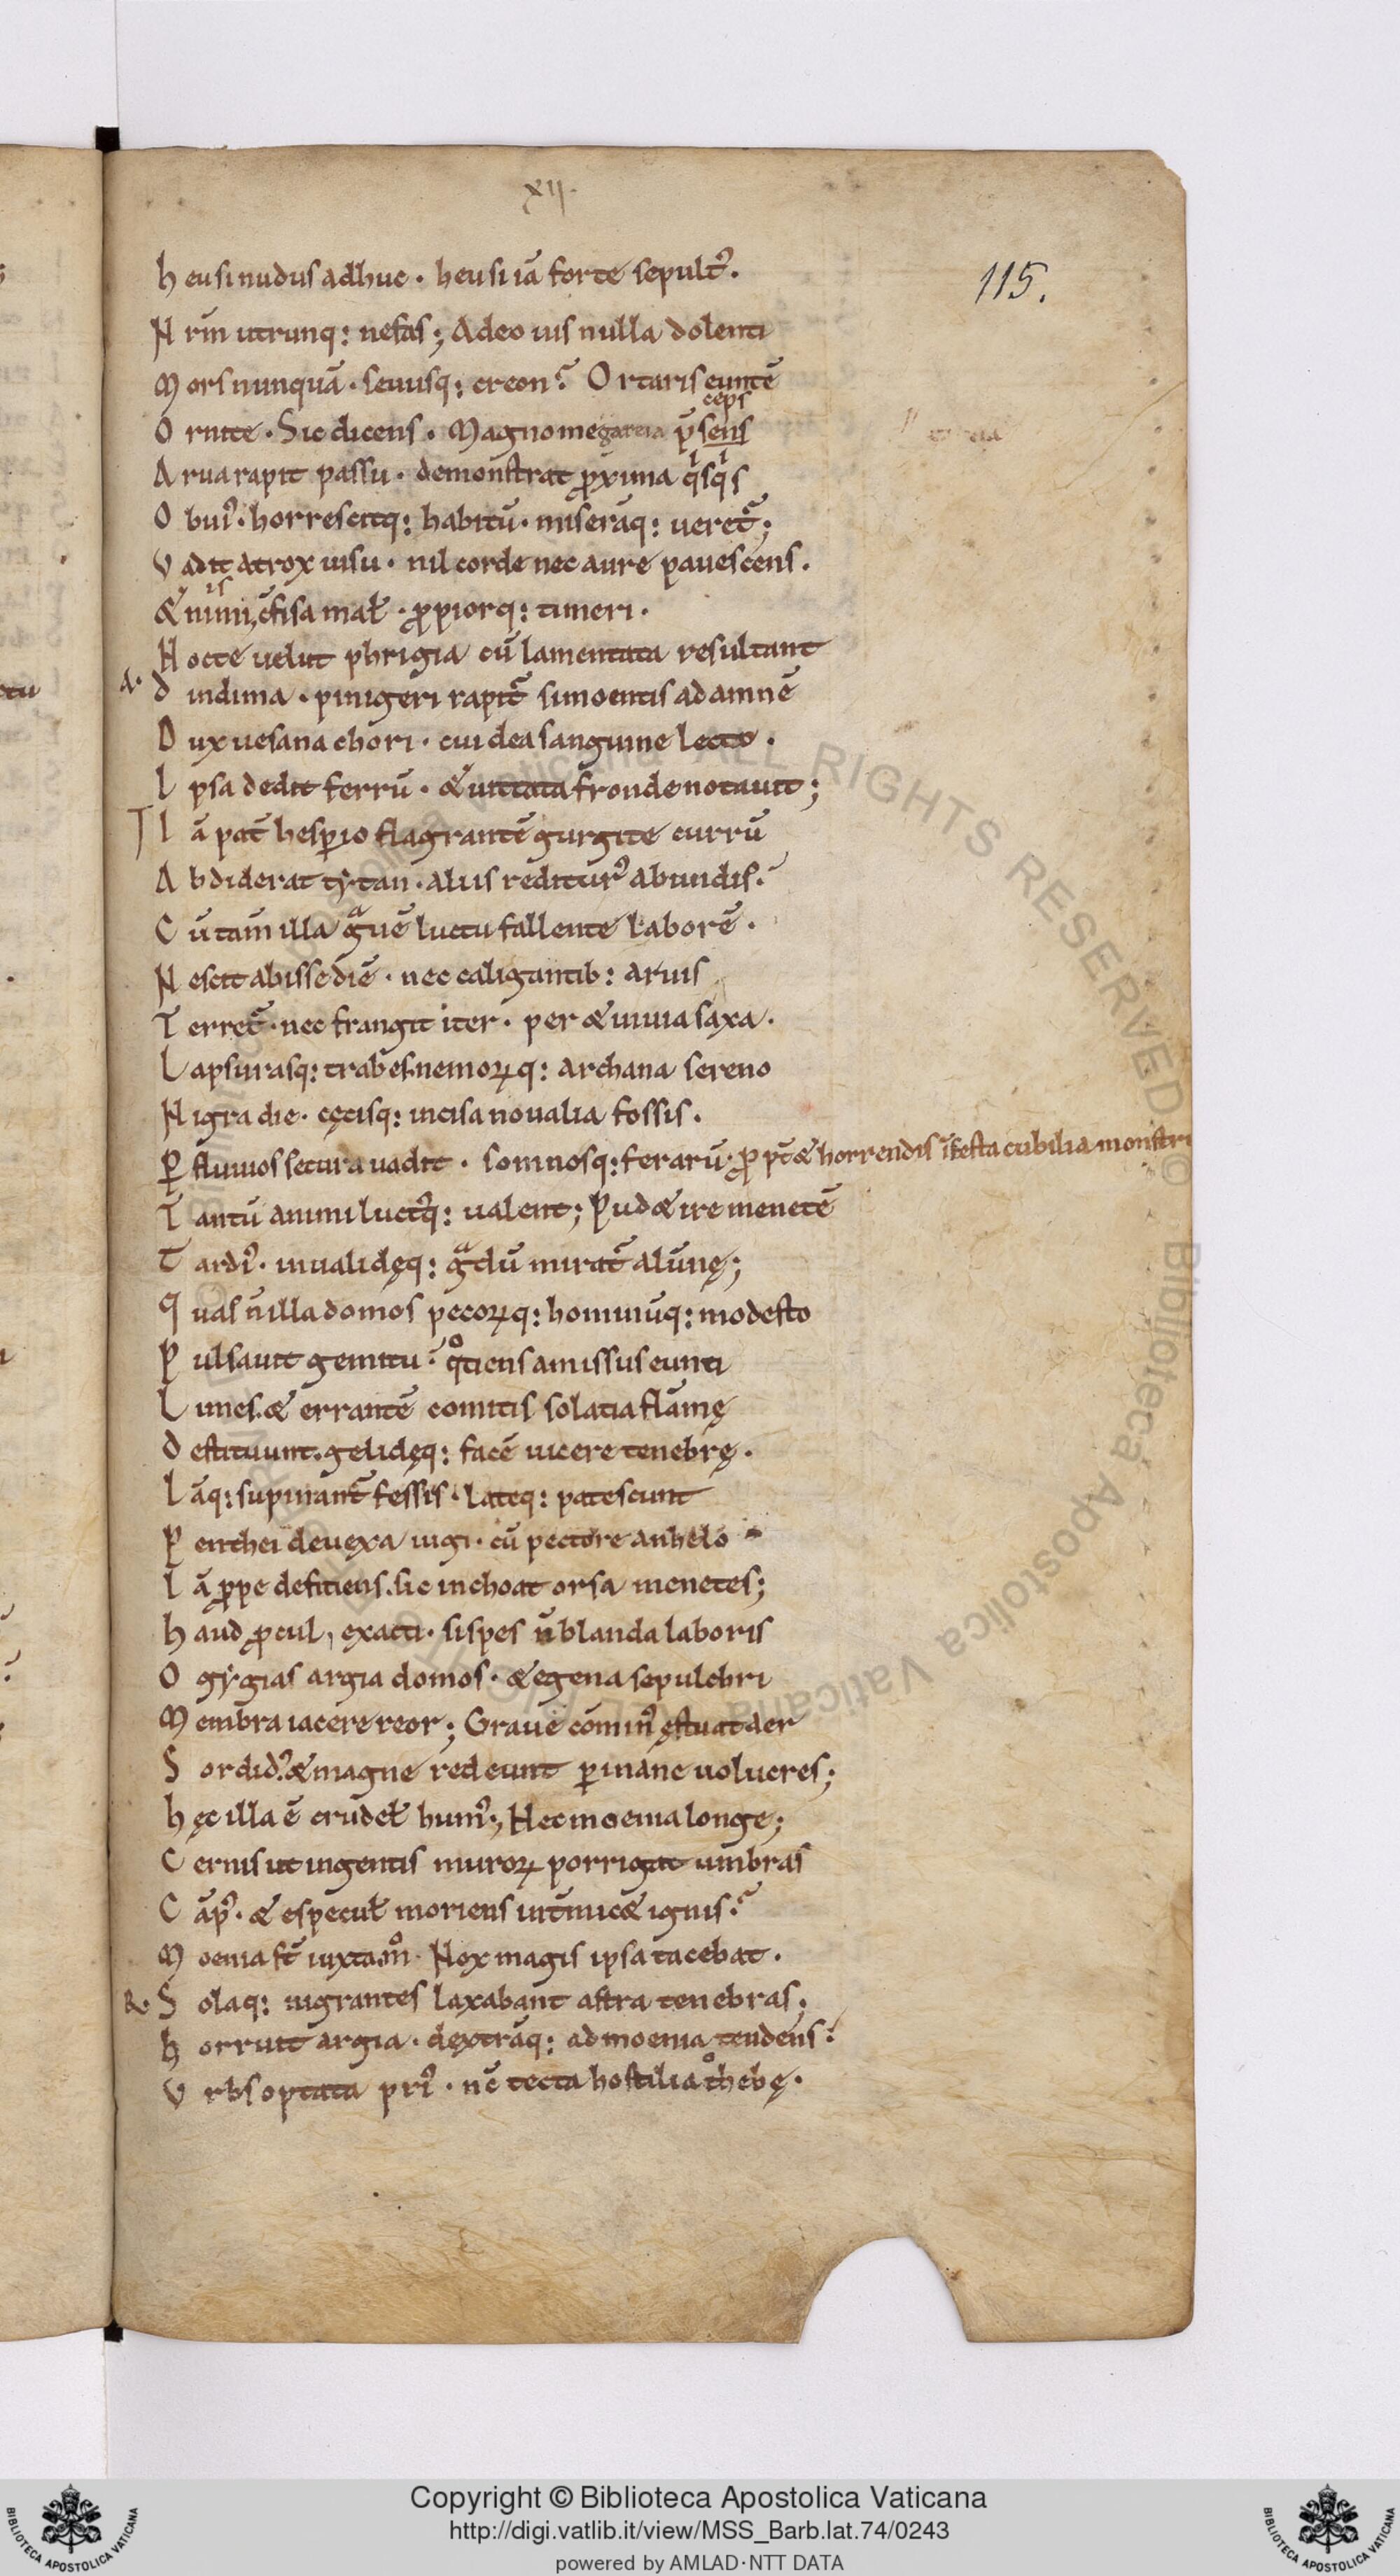 xij.
115.
H eu si nudus adhuc · heu si iā forte sepultꝰ.
N rm̄ utrunq: nefas; Adeo uis nulla dolenti
M ors nunquā · seuusq: creon? Ortaris euntē
ceps
O rnite · Sic dicens · Magno me gareia p̄sens
A rua rapit passu · demonstrat ꝓxima qͥsqͥs
O buiꝰ · horrescitq: habitū · miserāq: ueret᷑;
V adit atrox uisu · nil corde nec aure pauescens.
is
& nimi, c̄fisa mal̄ · ꝓpiorq: timeri.
N octe uelut phrigia cū lamentata resultant
A.
d indima · pinigeri rapit᷑ simoentis ad amnē
D ux uesana chori · cui dea sanguine lecto.
I psa dedit ferrū · & uittata fronde notauit;
I ā pat̄ hesꝑio flagrantē gurgite currū
A bdiderat tẏtan · aliis rediturꝰ ab undis.
C ū tam̄ illa gͣuē luctu fallente laborē.
N escit abisse diē · nec caligantib: aruis
T erret᷑ · nec frangit iter · per & inuia saxa.
L apsurasq: trabes · nemoꝝq: archana sereno
N igra die · cęcisq: incisa noualia fossis.
ꝑ fluuios secura uadit · somnosq: ferarū · ꝓpt̄ & horrendis īfesta cubilia monstri
T antū animi luctꝰq: ualent; Pud& ire menetē
T ardiꝰ · inualidęq: gͣdū mirat᷑ alūnę;
Q ual n̄ illa domos pecoꝝq: hominūq: modesto
P ulsauit gemitu? qͦtiens amissus eunti
L imes · & errantē comitis solatia flāmę
d estituunt · gelidęq: facē uicere tenebrę.
I āq: supinant᷑ fessis · lateq: patescunt
P enthei deuexa iugi · cū pectore anhelo
I ā ꝓpe deficiens · sic inchoat orsa menetes;
H aud ꝓcul, exacti · si spes n̄ blanda laboris
O gẏgias argia domos · & egena sepulchri
M embra iacere reor; Graue cōminꝰ ęstuat aer
S ordidꝰ · & magne redeunt ꝑ inane uolucres;
H ęc illa ē crudel̄ humꝰ; Nec moenia longe;
C ernis ut ingentis muroꝝ porrigat umbras
C āpꝰ · & e specul̄ moriens int̄mic& ignis?
M oenia st̄ iuxta · mͦ Nox magis ipsa tacebat.
R.
S olaq: nigrantes laxabant astra tenebras;
H orruit argia · dextrāq: ad moenia tendens:
V rbs optata priꝰ · nc̄ tecta hostilia thebę.
Copyright © Biblioteca Apostolica Vaticana
http://digi.vatlib.it/view/MSS_Barb.lat.74/0243
powered by AMLAD·NTT DATA